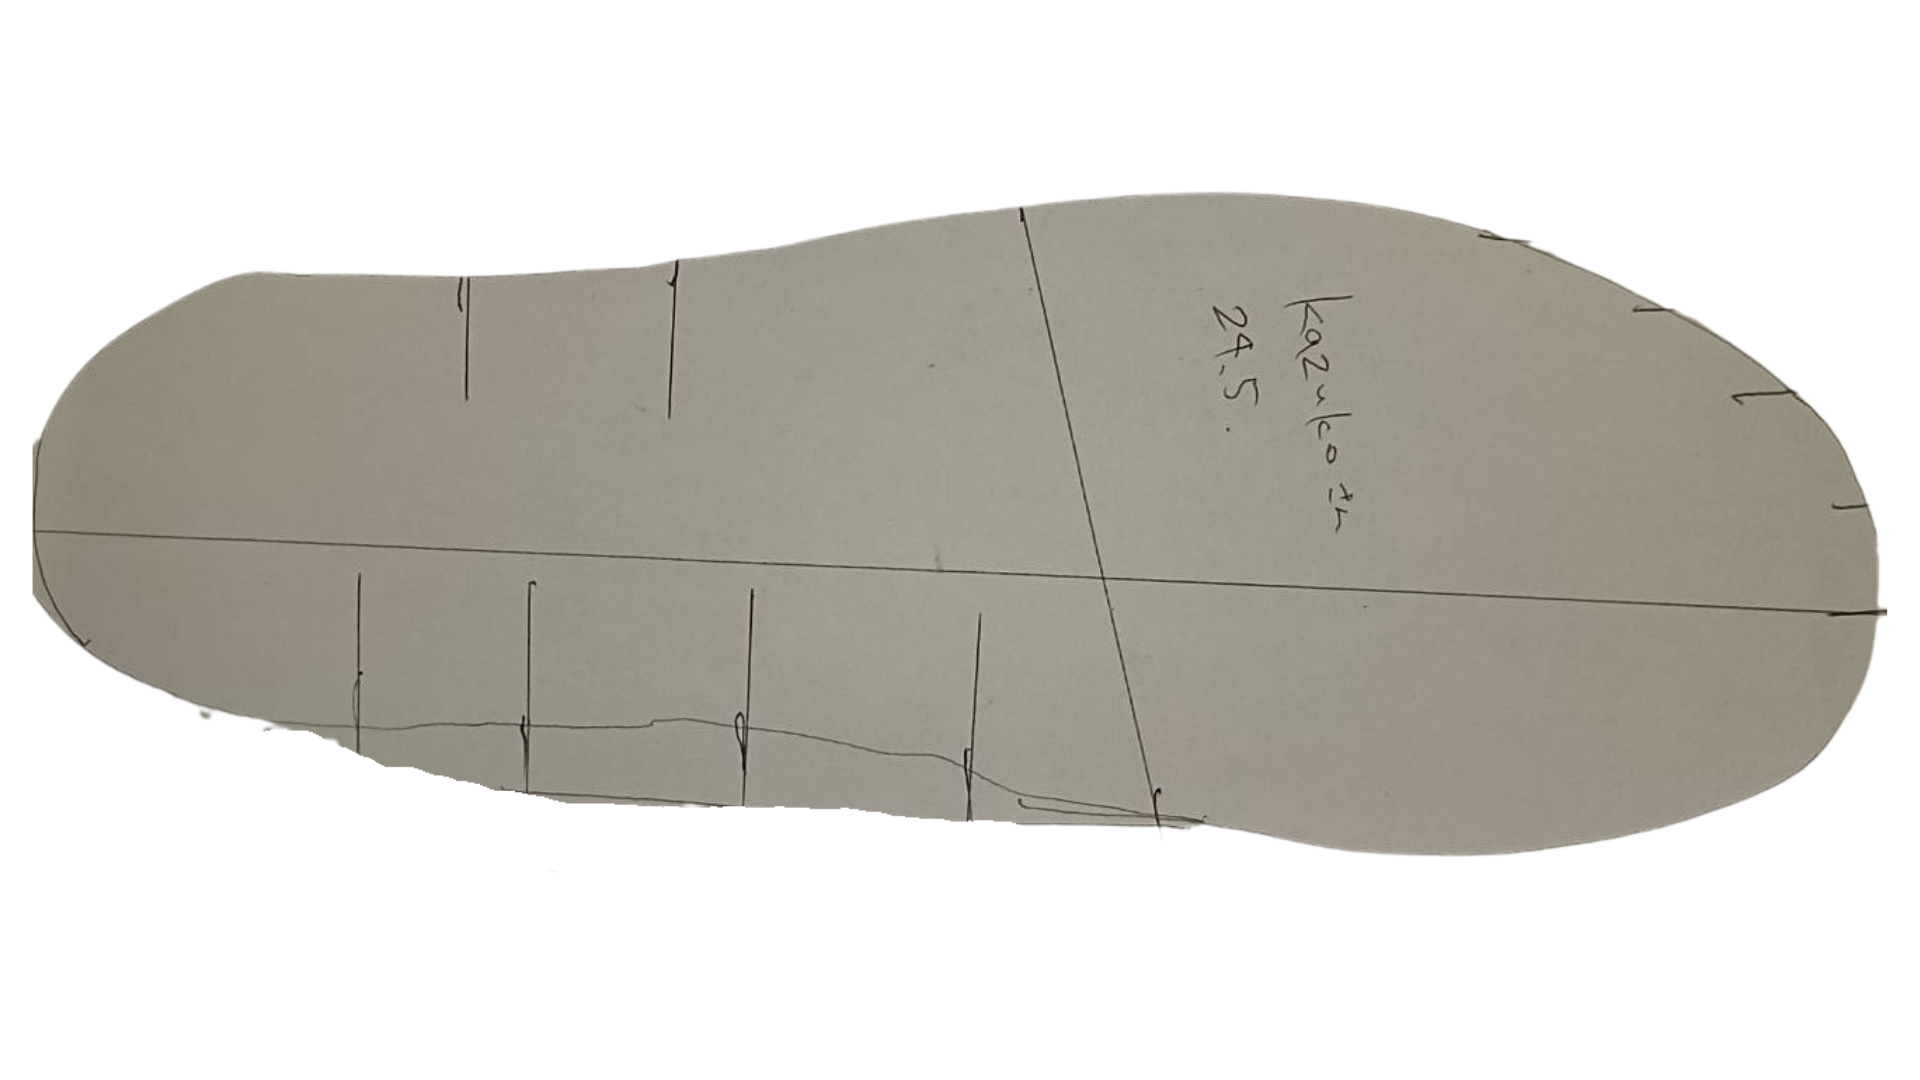 Kazuko左
24.5.